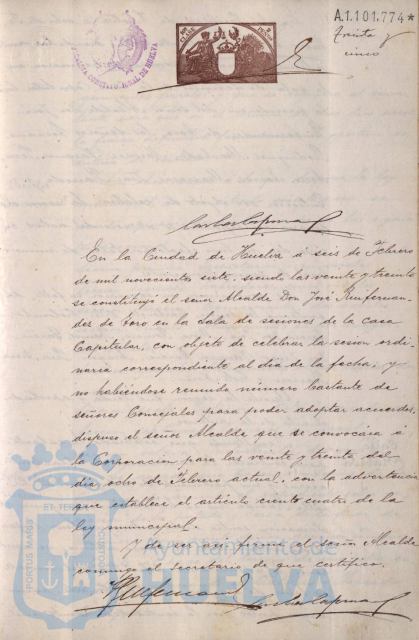 A.1.101.774*
Treinta y
cinco
ALCALDIA CONSTITUCIONAL DE HUELVA
En la Ciudad de Huelva á seis de Febrero
de mil novecientos siete, siendo las veinte y treinta
se constituyó el señor Alcalde Don José
de Toro en la Sala de sesiones de la casa
Capitular, con objeto de celebrar la sesion ordi-
naria correspondiente al dia de la fecha, y
no habiéndose reunido número bastante de
señores Concejales para poder adoptar acuerdos,
dispuso el señor Alcalde que se convocára á
la Corporacion para las veinte y treinta del
dia ocho de Febrero actual, con la advertencia
que establece el artículo ciento cuatro de la
ley municipal.
Y de ser así firma el señor Alcalde
conmigo el secretario de que certifico.
PORTUS MARIS
ET TERRAE
CUSTODIA
Ayuntamiento de
HUELVA